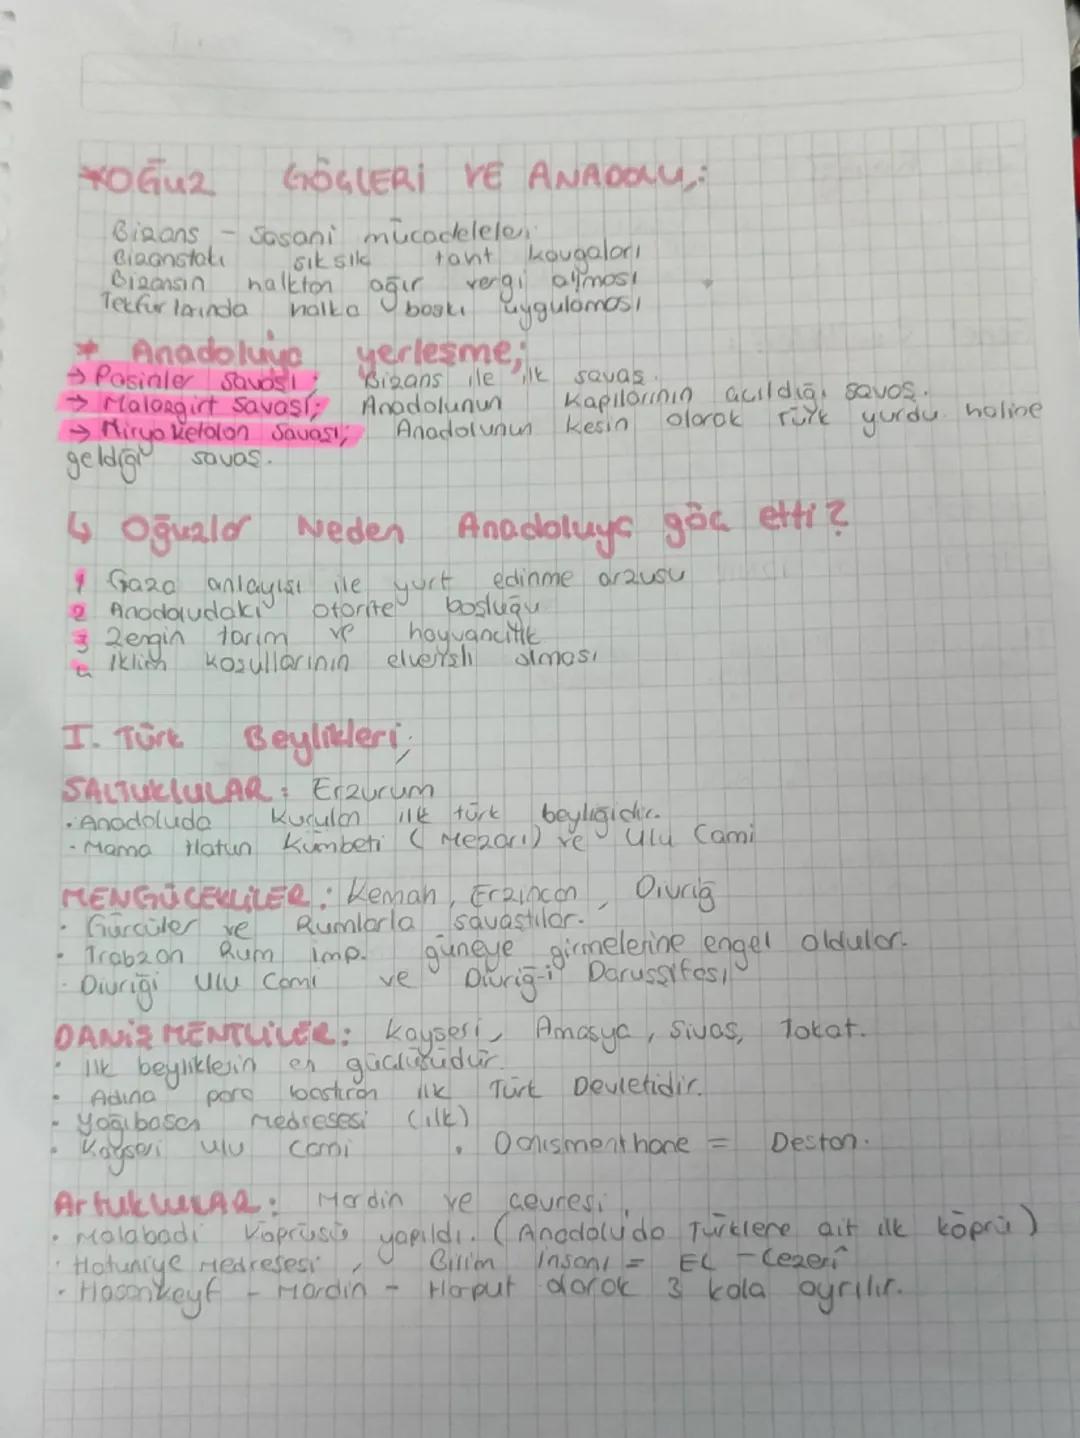 *OĞUZ GÖÇLERİ VE ANADOLU;
Bizans - Sasani mücadeleleri
Bizanstaki sık sık taht kavgaları
Bizansın halktan ağır vergi alması
Tekfurlarında halka baskı uygulaması
* Anadoluya yerleşme;
→ Pasinler Savaşı; Bizans ile ilk savaş.
→ Malazgirt Savaşı; Anadolunun Kapılarının açıldığı savaş.
→ Miryokefalon Savaşı; Anadolunun kesin olarak Türk yurdu haline
geldiği savaş.
↳ Oğuzlar Neden Anadoluya göç etti?
1 Gaza anlayışı ile yurt edinme arzusu
2 Anadoludaki otorite boşluğu
3 Zengin tarım ve hayvancılık
4 İklim koşullarının elverişli olması
I. Türk Beylikleri;
SALTUKLULAR: Erzurum
·Anadoluda Kurulan ilk türk beyliğidir.
·Mama Hatun Kümbeti (Mezarı) ve Ulu Cami
MENGÜCEKLİLER: Kemah, Erzincan, Divriğ
· Gürcüler ve Rumlarla savaştılar.
· Trabzon Rum imp. güneye girmelerine engel oldular.
· Divriği Ulu Cami ve Divriğ-i Darüşşifası
DANİŞMENTLİLER: Kayseri, Amasya, Sivas, Tokat.
· İlk beyliklerin en güçlüsüdür.
· Adına para bastıran ilk Türk Devletidir.
· Yağıbasan Medresesi (ilk)
· Kayseri Ulu Cami · Danışmenthane = Destan.
ArtukLULAR: Mardin ve çevresi,
· Malabadi Köprüsü yapıldı. (Anadoluda Türklere ait ilk köprü)
· Hatuniye Medresesi, Bilim İnsanı = EL - Cezeri
· Hasankeyf - Mardin - Harput olarak 3 kola ayrılır.